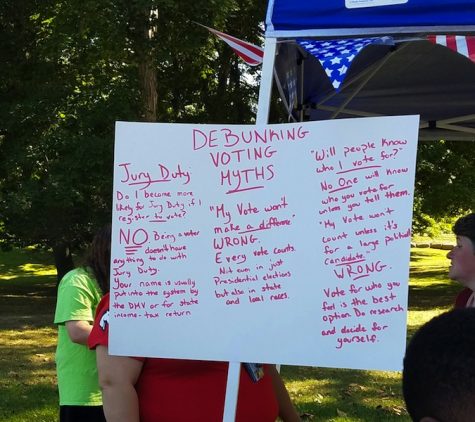 DEBUNKING
VOTING
MYTHS
Jury Duty
Do I become more
likely for Jury Duty if I
register to vote?
NO Being a voter
doesn't have
anything to do with
Jury Duty.
Your name is usually
put into the system by
the DMV or for state
income-tax return
"My Vote won't
make a difference."
WRONG.
Every vote counts
Not even in just
Presidential elections
but also in state
and local races.
"Will people know
who I vote for?"
No One will know
who you vote for
unless you tell them.
"My Vote won't
count unless it's
for a large political
candidate."
WRONG.
Vote for who you
feel is the best
option. Do research
and decide for
yourself.